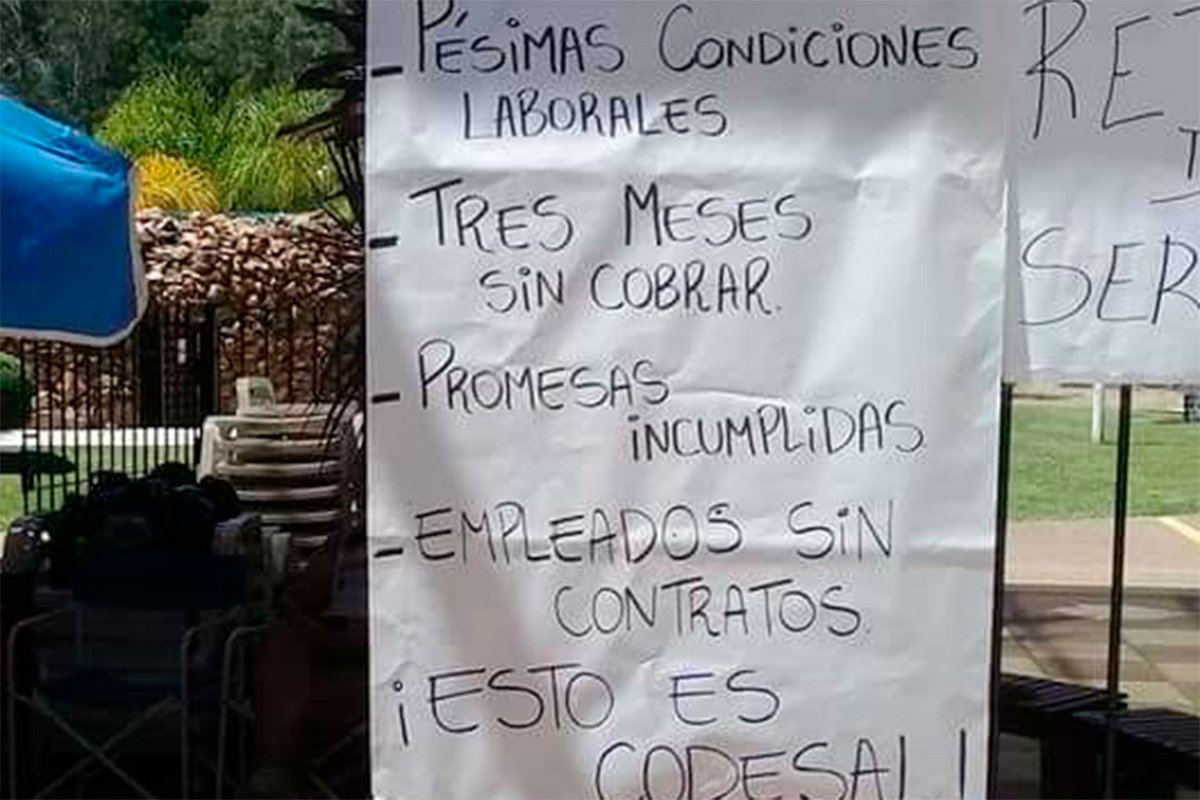 - PÉSIMAS CONDICIONES
LABORALES
- TRES MESES
SIN COBRAR.
- PROMESAS
INCUMPLIDAS.
- EMPLEADOS SIN
CONTRATOS.
¡ESTO ES
CODESAL!
RE
SER